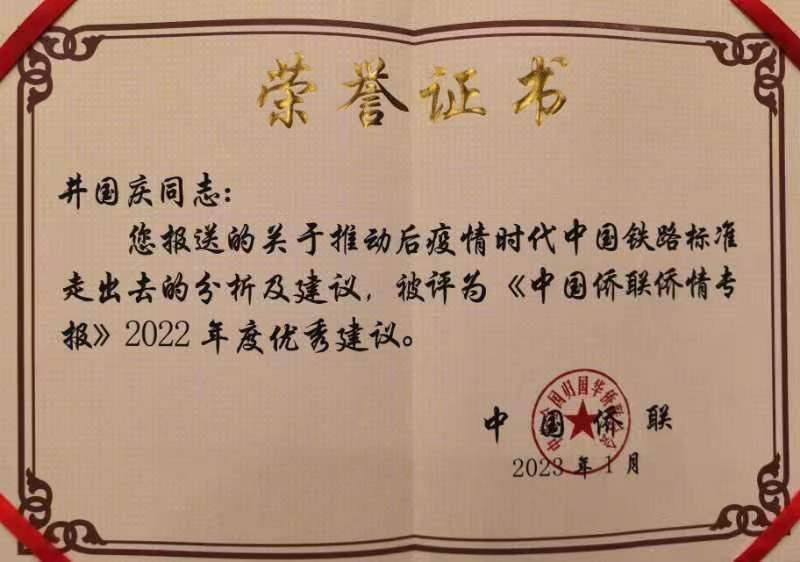 荣誉证书
井国庆同志：
您报送的关于推动后疫情时代中国铁路标准
走出去的分析及建议，被评为《中国侨联侨情专
报》2022 年度优秀建议。
中国侨联
中华全国归国华侨联合会
2023 年 1 月